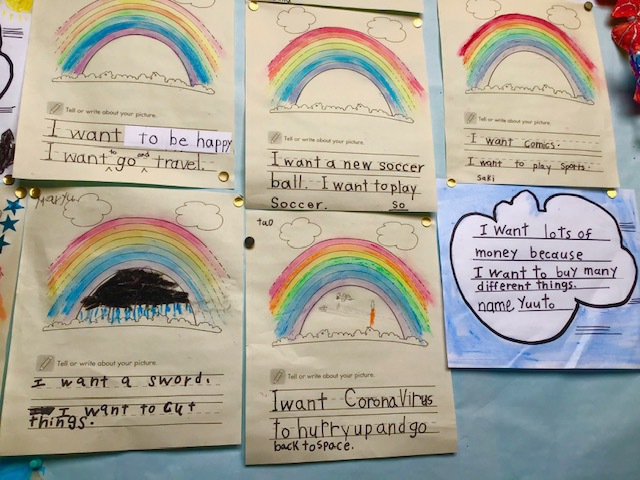 Tell or write about your picture.
I want to be happy
I want to go and travel.
Tell or write about your picture.
I want a new soccer
ball. I want to play
Soccer.
So
Tell or write about your picture.
I want comics.
I want to play sports
Saki
Tell or write about your picture.
I want a sword.
I want to cut
things.
tao
Tell or write about your picture.
I want CoronaVirus
to hurry up and go
back to space.
I want lots of
money because
I want to buy many
different things.
name Yuuto